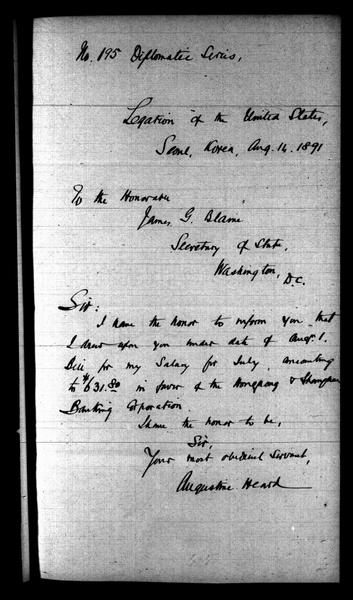 No. 195 Diplomatic Series,
Legation of the United States,
Seoul, Korea, Aug. 14. 1891
To the Honorable
James G. Blaine
Secretary of State,
Washington, D.C.
Sir:
I have the honor to inform you that
I drew upon you under date of Aug. 1.
Bill for my Salary for July, amounting
to $631.80 in favor of the Hongkong & Shanghai
Banking Corporation.
I have the honor to be,
Sir,
Your most obedient Servant,
Augustine Heard